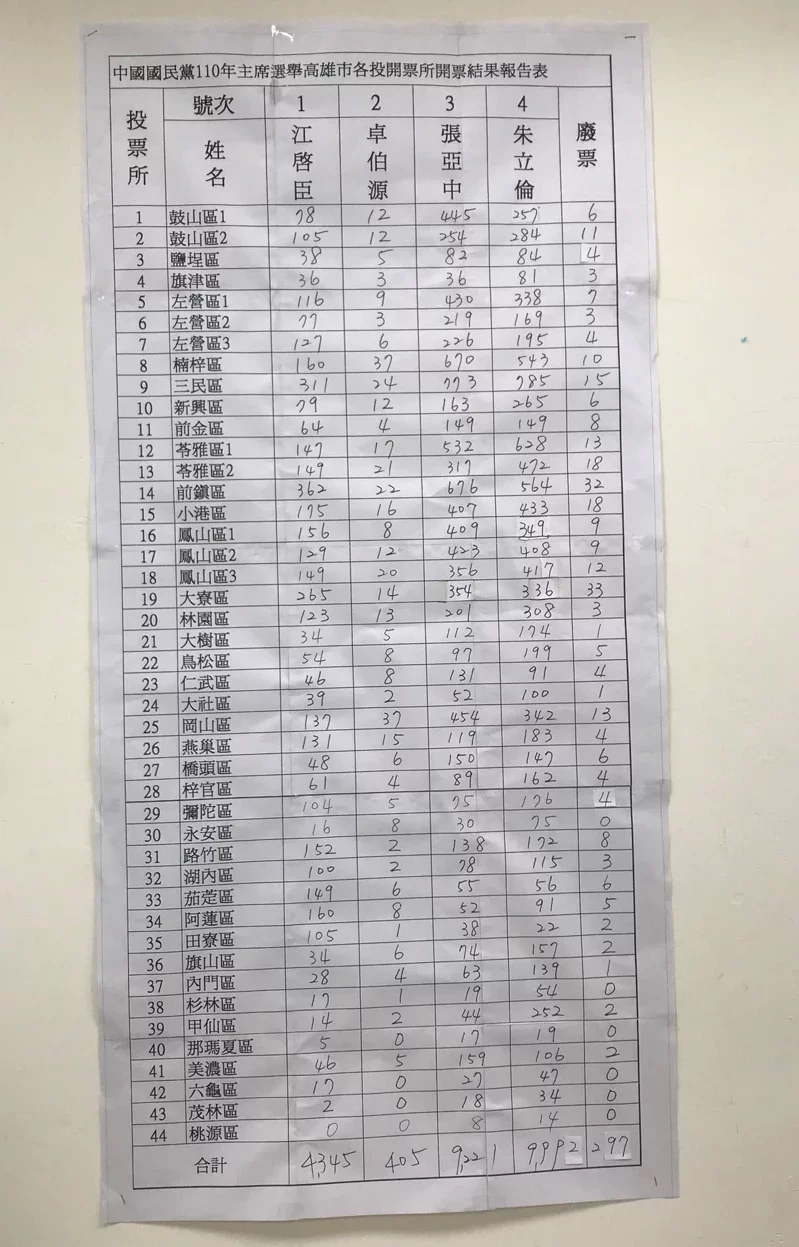 中國國民黨110年主席選舉高雄市各投開票所開票結果報告表
投票所 號次 1 2 3 4 廢票
姓名 江啓臣 卓伯源 張亞中 朱立倫
1 鼓山區1 78 12 445 257 6
2 鼓山區2 105 12 254 284 11
3 鹽埕區 38 5 82 84 4
4 旗津區 36 3 36 81 3
5 左營區1 116 9 430 338 7
6 左營區2 77 3 219 169 3
7 左營區3 127 6 226 195 4
8 楠梓區 160 37 670 543 10
9 三民區 311 24 773 785 15
10 新興區 79 12 163 265 6
11 前金區 64 4 149 149 8
12 苓雅區1 147 17 532 628 13
13 苓雅區2 149 21 317 472 18
14 前鎮區 362 22 676 564 32
15 小港區 175 16 407 433 18
16 鳳山區1 156 8 409 349 9
17 鳳山區2 129 12 423 408 9
18 鳳山區3 149 20 356 417 12
19 大寮區 265 14 354 336 33
20 林園區 123 13 201 308 3
21 大樹區 34 5 112 174 1
22 鳥松區 54 8 97 199 5
23 仁武區 46 8 131 91 4
24 大社區 39 2 52 100 1
25 岡山區 137 37 454 342 13
26 燕巢區 131 15 119 183 4
27 橋頭區 48 6 150 147 6
28 梓官區 61 4 89 162 4
29 彌陀區 104 5 75 176 4
30 永安區 16 8 30 75 0
31 路竹區 152 2 138 172 8
32 湖內區 100 2 78 115 3
33 茄萣區 149 6 55 56 6
34 阿蓮區 160 8 52 91 5
35 田寮區 105 1 38 22 2
36 旗山區 34 6 74 157 2
37 內門區 28 4 63 139 1
38 杉林區 17 1 19 54 0
39 甲仙區 14 2 44 252 2
40 那瑪夏區 5 0 17 19 0
41 美濃區 46 5 159 106 2
42 六龜區 17 0 27 47 0
43 茂林區 2 0 18 34 0
44 桃源區 0 0 8 14 0
合計 4,345 405 9,221 9,992 297